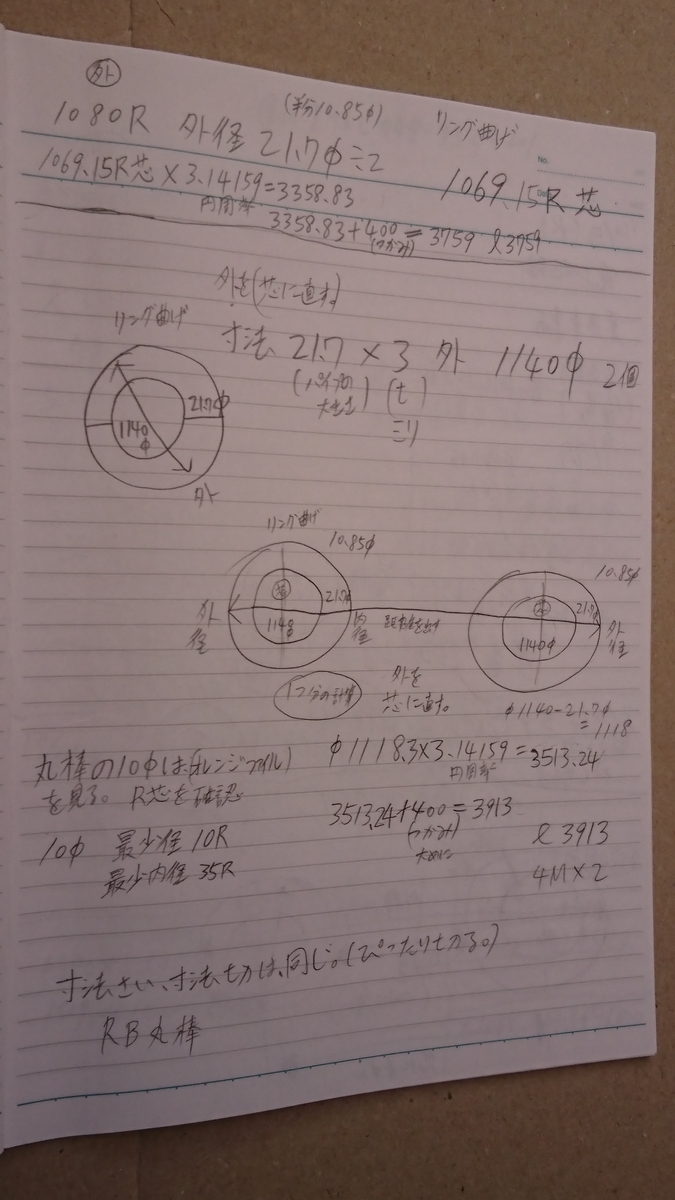 外
(半分10.85φ) リング曲げ
1080R 外径 21.7φ÷2
1069.15R芯
No.
1069.15R芯×3.14159=3358.83
円周率
3358.83+400=3759 ℓ3759
(つかみ)
外を(芯に直す。
リング曲げ
寸法 21.7×3 外 1140φ 2個
(パイプの大きさ) (t)
ミリ
21.7φ
1140φ
外
リング曲げ
10.85φ
10.85φ
外径
芯
21.7φ
1140φ
内径
芯
21.7φ
1140φ
外径
1つ分の計算
外を
芯に直す。
φ1140-21.7φ
=1118
丸棒の10φは(オレンジファイル)
を見る。 R芯を確認
φ1118.3×3.14159=3513.24
円周率
10φ 最少径 10R
最少内径 35R
3513.24+400=3913
(つかみ)
大めに
ℓ3913
4M×2
寸法さい、寸法切りは、同じ。(ぴったり切る。)
RB丸棒